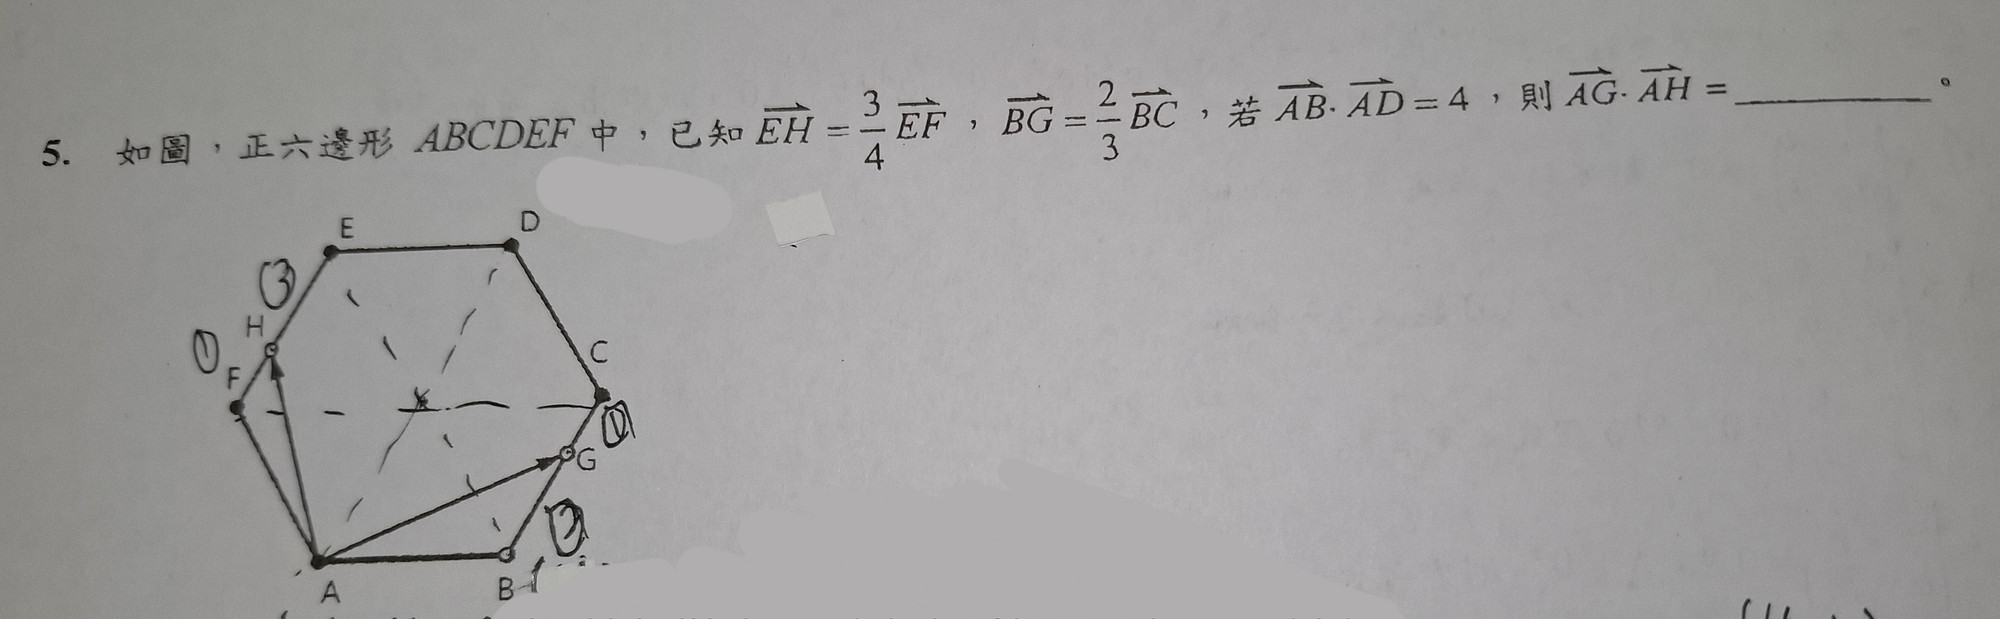 5. 如圖，正六邊形 ABCDEF 中，已知 $\overrightarrow{EH}=\frac{3}{4}\overrightarrow{EF}$，$\overrightarrow{BG}=\frac{2}{3}\overrightarrow{BC}$，若 $\overrightarrow{AB}\cdot\overrightarrow{AD}=4$，則 $\overrightarrow{AG}\cdot\overrightarrow{AH}=$ ________。
E
D
③
H
①
F
C
①
G
②
A
B